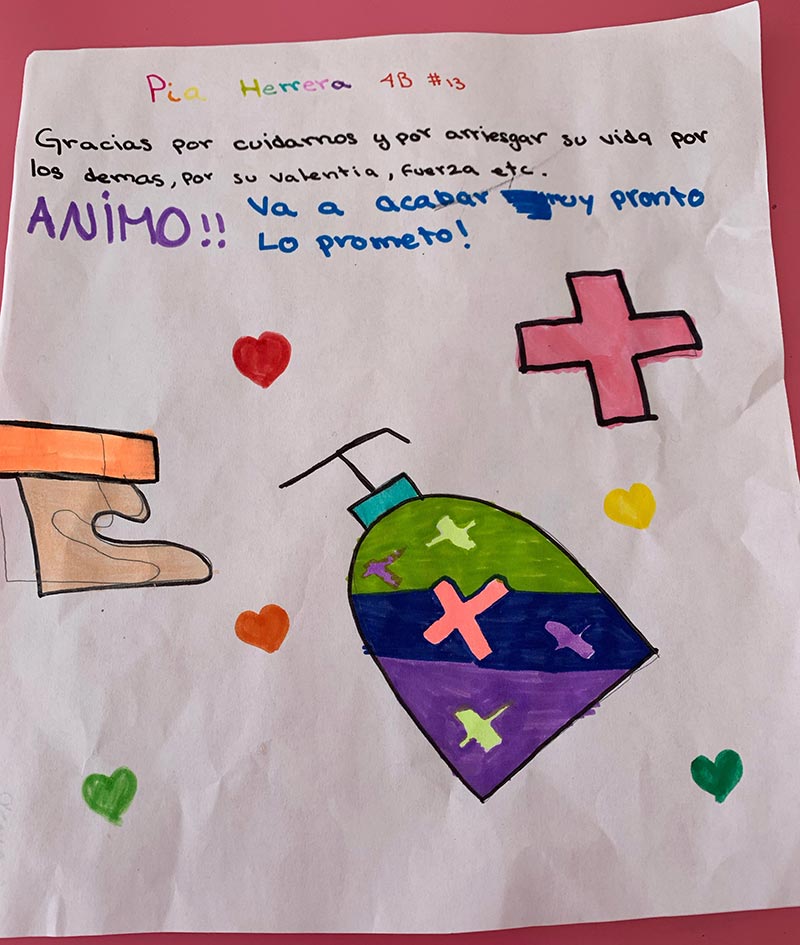 Pia Herrera 4B #13
Gracias por cuidarnos y por arriesgar su vida por
los demas, por su valentia, fuerza etc.
ANIMO!! Va a acabar muy pronto
Lo prometo!